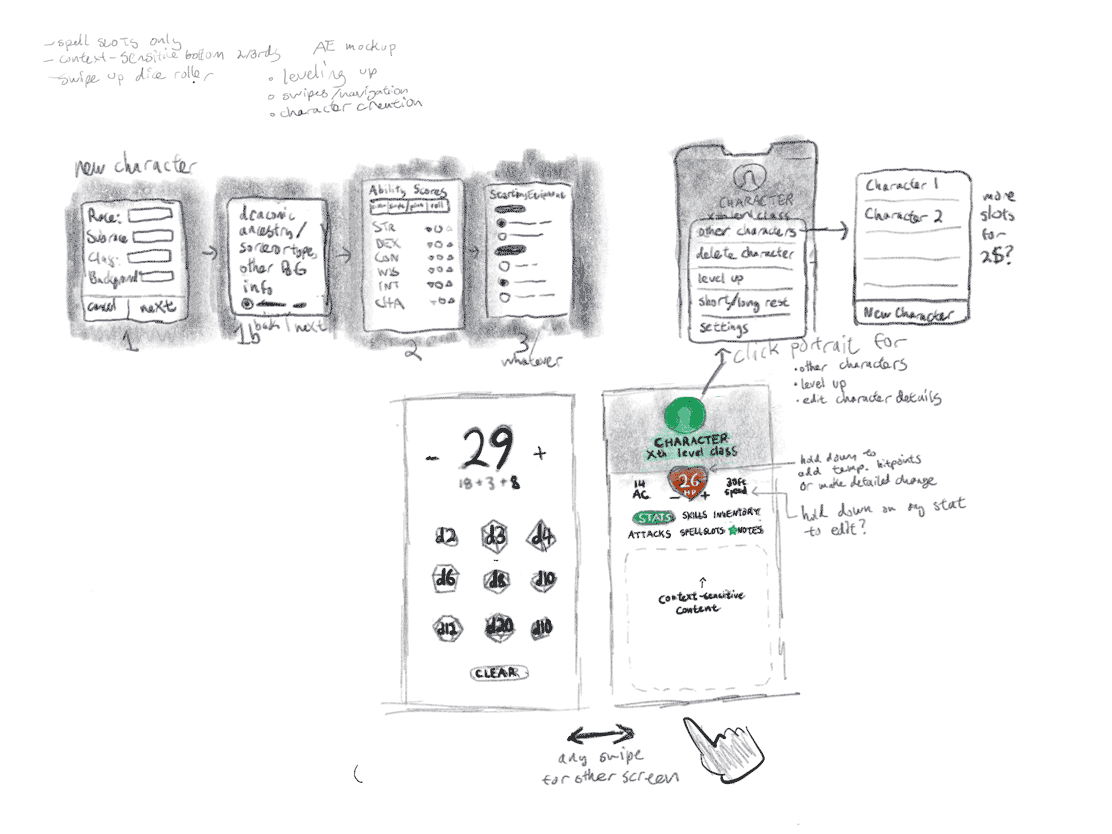 - spell slots only
- context-sensitive bottom 2/3rds
- swipe up dice roller
AE mockup
• leveling up
• swipes/navigation
• character creation
new character
Race:
Subrace
Class:
Background
cancel next
1
draconic
ancestry/
sorcerer type,
other
info
back / next
1b
Ability Scores
roll
STR
DEX
CON
WIS
INT
CHA
2
Starting Equipment
3/
whatever
CHARACTER
Xth level class
other characters
delete character
level up
short/long rest
settings
Character 1
Character 2
New Character
more
slots
for
2$?
click portrait for
• other characters
• level up
• edit character details
- 29 +
18 + 3 + 8
d2 d3 d4
d6 d8 d10
d12 d20 d10
CLEAR
CHARACTER
Xth level class
14
AC
26
HP
- +
30ft
speed
STATS SKILLS INVENTORY
ATTACKS SPELLSLOTS NOTES
↑
context-sensitive
content
hold down to
add temp. hitpoints
or make detailed change
hold down on any stat
to edit?
any swipe
for other screen